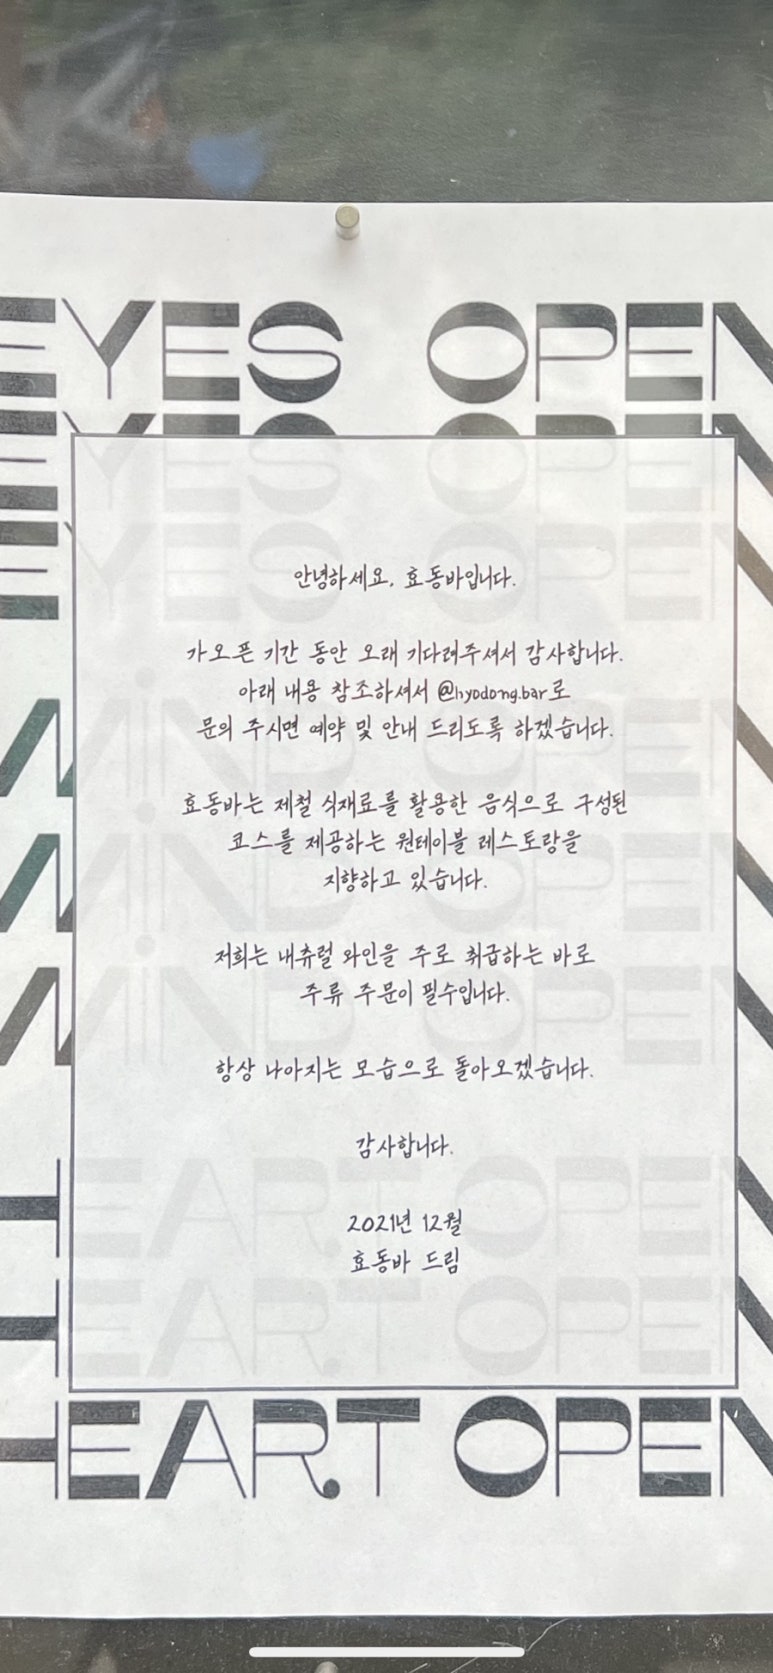 EYES OPEN
EYES OPEN
EYES OPEN
안녕하세요, 효동바입니다.
가오픈 기간 동안 오래 기다려주셔서 감사합니다.
아래 내용 참조하셔서 @hyodong.bar로
문의 주시면 예약 및 안내 드리도록 하겠습니다.
MIND OPEN
효동바는 제철 식재료를 활용한 음식으로 구성된
코스를 제공하는 원테이블 레스토랑을
지향하고 있습니다.
MIND OPEN
저희는 내츄럴 와인을 주로 취급하는 바로
주류 주문이 필수입니다.
MIND OPEN
항상 나아지는 모습으로 돌아오겠습니다.
감사합니다.
HEART OPEN
2021년 12월
효동바 드림
HEART OPEN
HEART OPEN